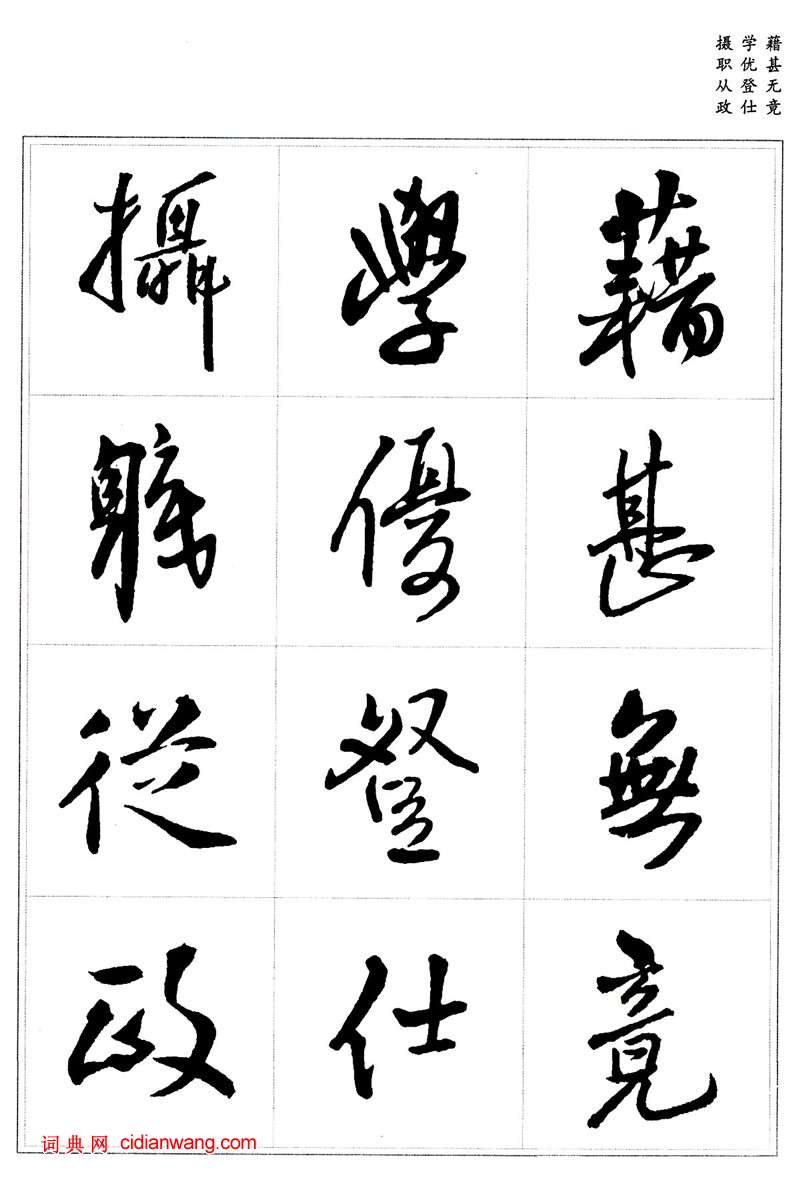 藉甚无竟
学优登仕
摄职从政
藉甚無竟
學優登仕
攝職從政
词典网 cidianwang.com